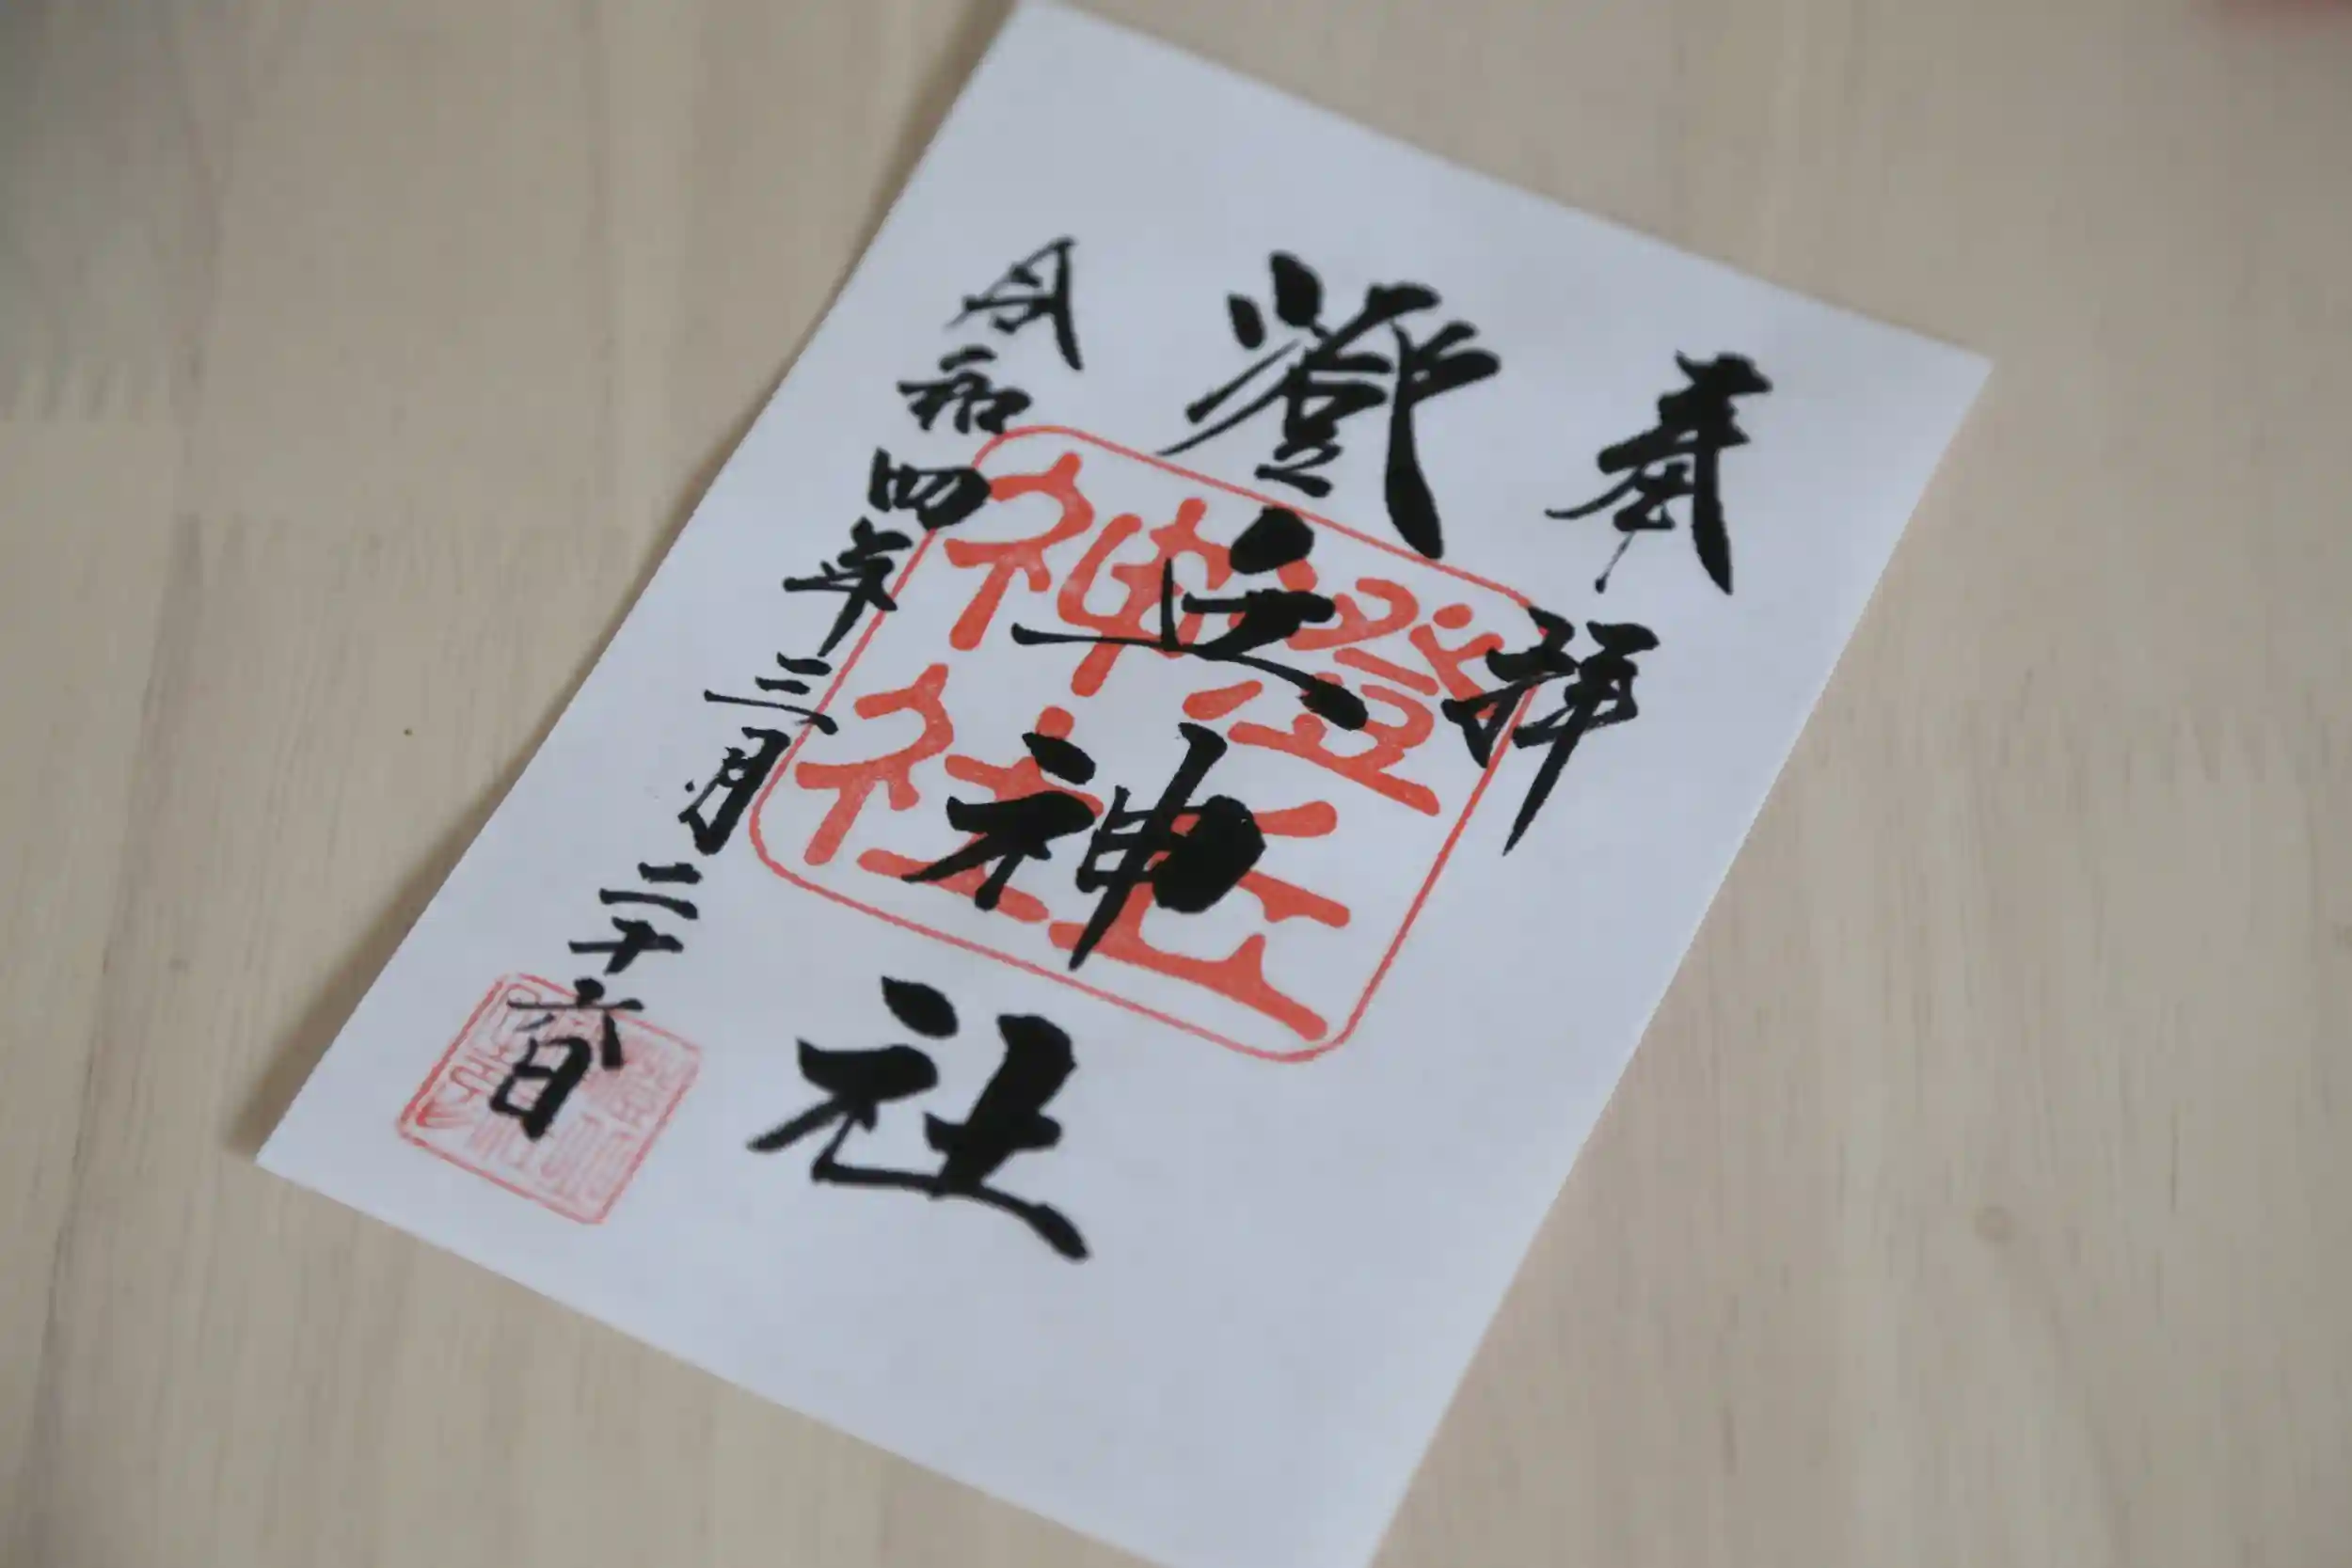 奉拝
登
神社
令和四年三月二十六日
登
神社